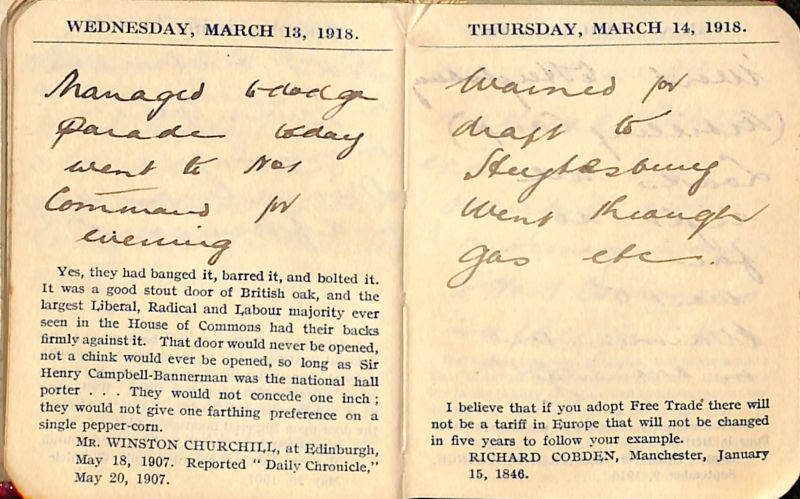 WEDNESDAY, MARCH 13, 1918.
Managed to dodge
parade today
went to Nos
Command for
evening
Yes, they had banged it, barred it, and bolted it.
It was a good stout door of British oak, and the
largest Liberal, Radical and Labour majority ever
seen in the House of Commons had their backs
firmly against it. That door would never be opened,
not a chink would ever be opened, so long as Sir
Henry Campbell-Bannerman was the national hall
porter . . . They would not concede one inch ;
they would not give one farthing preference on a
single pepper-corn.
MR. WINSTON CHURCHILL, at Edinburgh,
May 18, 1907. Reported "Daily Chronicle,"
May 20, 1907.
THURSDAY, MARCH 14, 1918.
Warned for
draft to
went through
gas etc.
I believe that if you adopt Free Trade there will
not be a tariff in Europe that will not be changed
in five years to follow your example.
RICHARD COBDEN, Manchester, January
15, 1846.